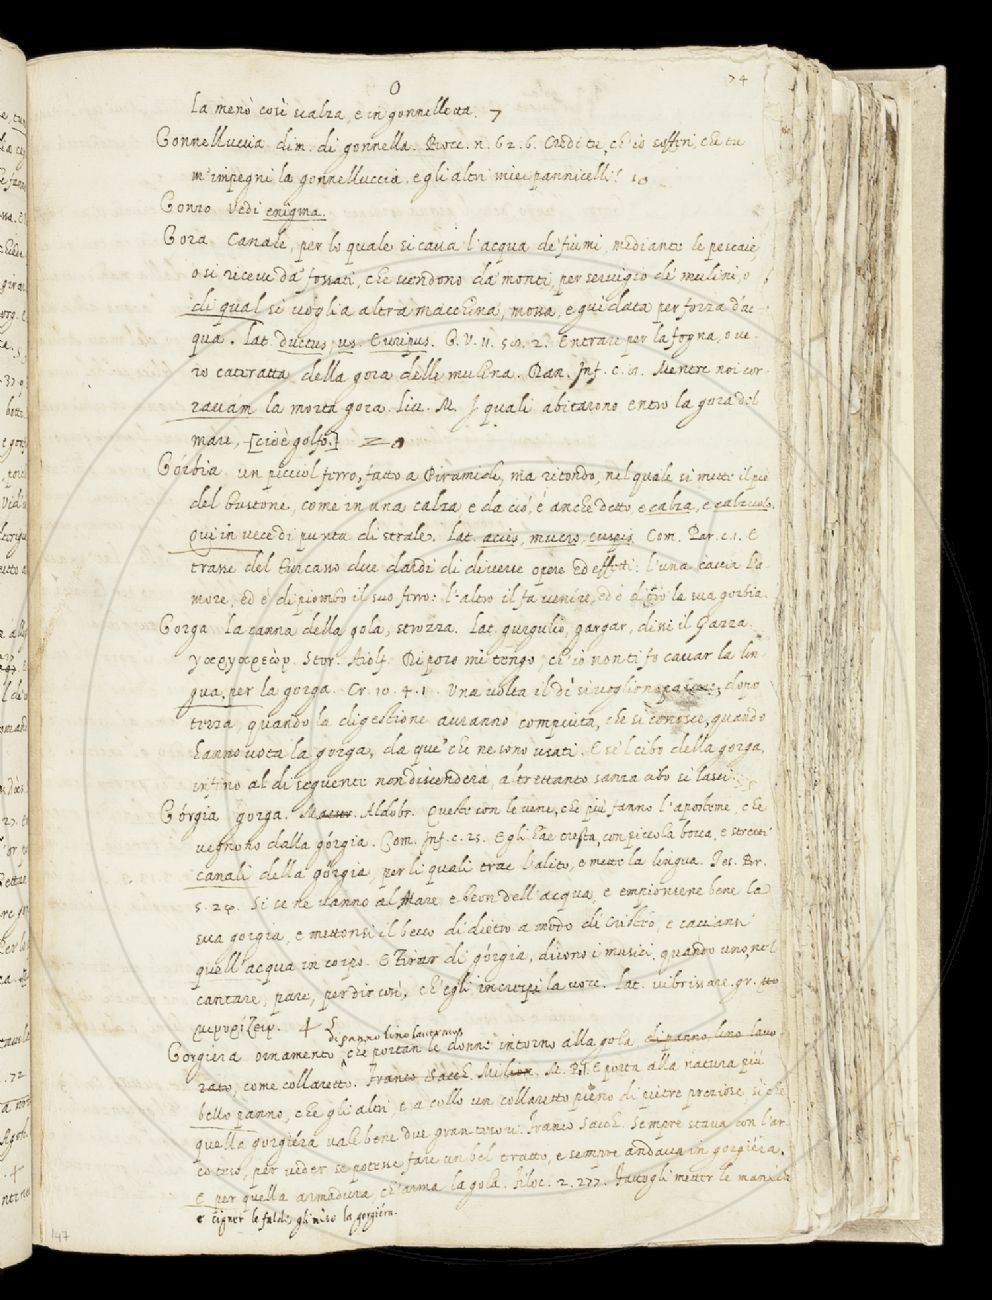 74
O
La menò così scalza, e in gonnelletta. 7
Gonnelluccia dim. di gonnella. Bocc. n. 62. 6. Credi tu, ch'io soffri, che tu
m'impegni la gonnelluccia, e gli altri miei pannicelli? 10
Gonzo Vedi enigma.
Gora Canale, per lo quale si cava l'acqua de' fiumi, mediante le pescaie,
o si riceve da' fossati, che scendono da' monti, per servigio de' mulini, o
di qual si voglia altra macchina, mossa, e guidata per forza d'ac-
qua. Lat. ductus, us. Euripus. G. V. 11. 2. Entrare per la fogna, ove-
ro cateratta della gora delle mulina. Dan. Inf. c. Mentre noi cor-
ravam la morta gora. Liv. M. I quali abitarono entro la gora del
mare, [cioè golfo.]
Górbia un picciol ferro, fatto a Piramide, ma ritondo, nel quale si mette il piè
del bastone, come in una calza e da ciò, è anche detto, e calza, e calzuolo.
Qui in vece di punta di strale. Lat. acies, mucro, cuspis. Com. Par. c. 1. E
trasse del turcasso due dardi di diverse opere, ed effetti: l'una caccia l'a-
more, ed è di piombo il suo ferro: l'altro il fa venire, ed è d'oro la sua gorbia.
Gorga La canna della gola, strozza. Lat. gurgulio, gargar, disse il Gazza.
γαργαρεὼρ. Stor. Aiolf. Di poco mi tengo, ch'io non ti fo cavar la lin-
gua, per la gorga. Cr. 10. 4. 1. Una volta il dì si vogliono pascere, dopo
terza, quando la digestione avranno compiuta, che si conosce, quando
hanno vota la gorga, da que' che ne sono usati. E se 'l cibo della gorga,
infino al dì seguente non discenderà, altrettanto sanza cibo si lasci.
Górgia gorga. Maestr. Aldobr. Queste son le vene, che più fanno l'aposteme, che
vegnono dalla górgia. Com. Inf. c. 25. Egli hae cresta, con piccola bocca, e stretti
canali della górgia, per li quali trae l'alito, e mette la lingua. Tes. Br.
5. Si se ne vanno al Mare e beon dell'acqua, e empionsene bene la
sua gorgia, e mettonsi il becco di dietro a modo di Cristéo, e caccianvi
quell'acqua in corpo. E Tirar di górgia, dicono i musici, quando uno, nel
cantare, pare, per dir così, ch'egli increspi la voce. Lat. vibrissare. gr.
di panno lino lavorato
Gorgiera ornamento, che portan le donne intorno alla gola di panno lino lavo-
rato, come collaretto. Franco Sacch. Milion. M. Pol. E porta alla natura più
bello panno, che gli altri, e a collo un collaretto pieno di pietre preziose, sì che
quella gorgiéra vale bene due gran tesori. Franco Sacch. Sempre stava con l'ar-
co teso, per veder se potesse fare un bel tratto, e sempre andava in gorgiéra.
E per quella armadura, ch'arma la gola. Filoc. 2. 277. Fattogli metter le maniche
e cigner le falde, gli mise la gorgiéra.
147